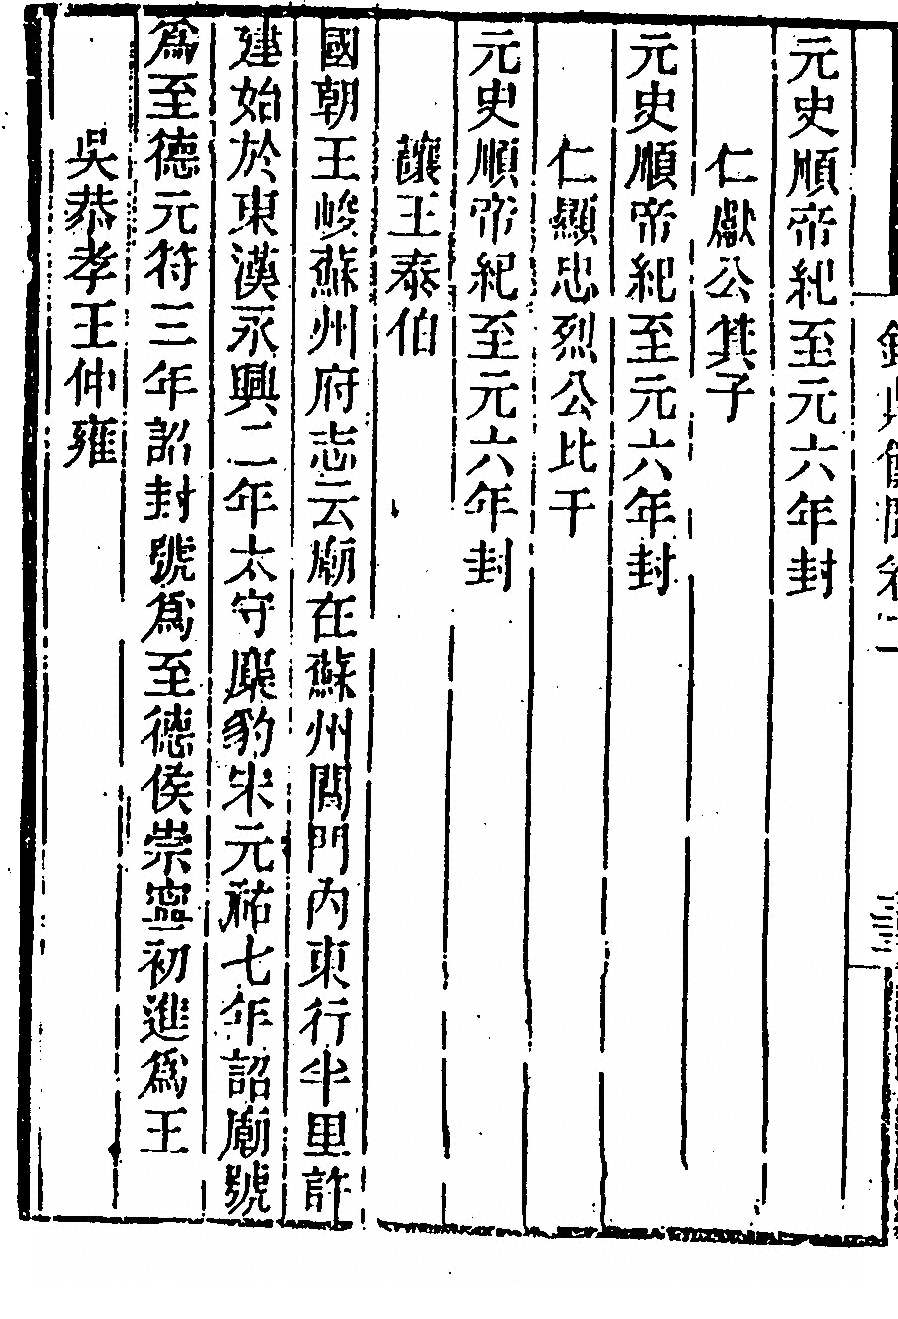 元史順帝紀至元六年封
仁獻公箕子
元史順帝紀至元六年封
仁顯忠烈公比干
元史順帝紀至元六年封
讓王泰伯
國朝王峻蘇州府志云廟在蘇州閶門內東行半里許
建始於東漢永興二年太守麋豹宋元祐七年詔廟號
爲至德元符三年詔封號爲至德侯崇寧初進爲王
吳恭孝王仲雍